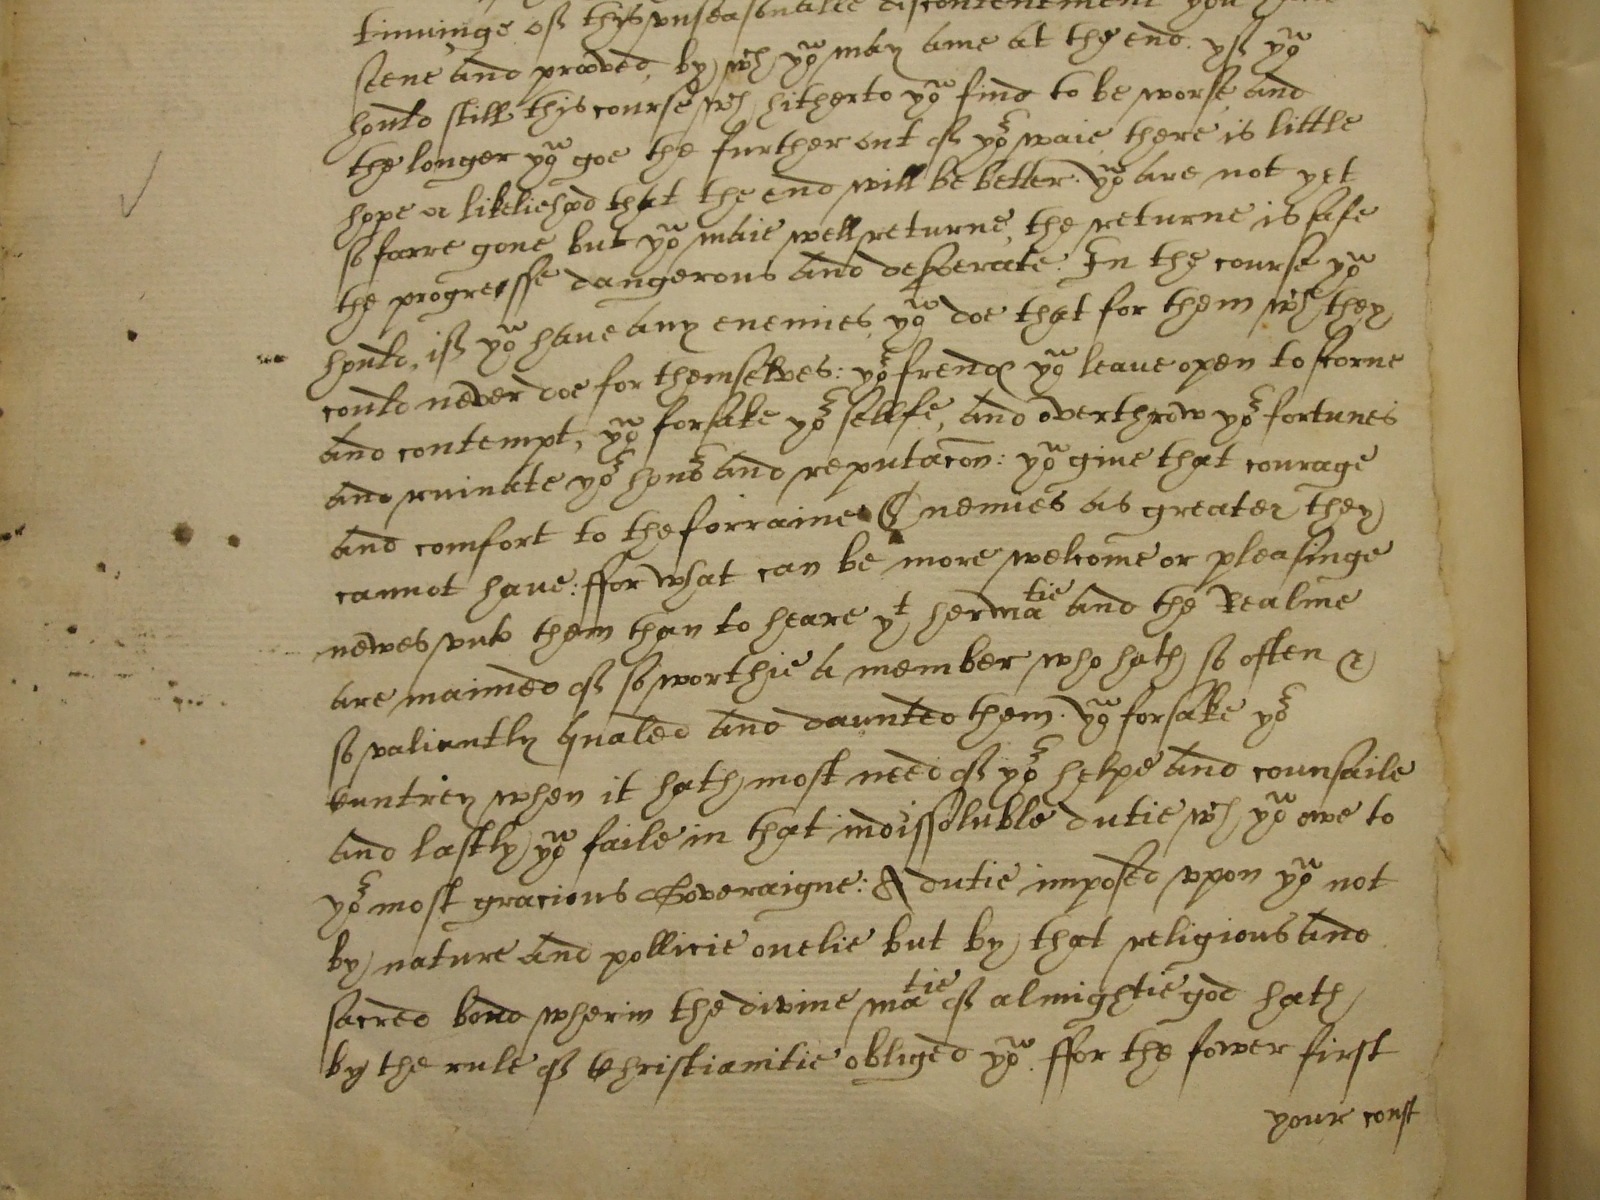 tinuinge off this vnseasonable discontentment you have
seene and prooved, by wch you may ame at the end. yff you
hould still this course wch hitherto you find to be worse and
the longer you goe the further out off yor waie, there is little
hope or likeliehood that the end will be better. you are not yet
so farre gone but you maie well returne, the returne is safe
the progresse dangerous and desperate. In the course you
hould, iff you have any enemies, you doe that for them wch they
could never doe for themselves: yor frendes you leaue open to scorne
and contempt, you forsake yor sellfe, and overthrow yor fortunes
and ruinate yor honor and reputacon: you giue that courage
and comfort to the forraine Enemies as greater they
cannot haue: ffor what can be more welcome or pleasinge
newes vnto them than to heare yt her matie and the Realme
are maimed off so worthie a member who hath so often &
so valiantly qualed and daunted them. you forsake yor
Cuntrey when it hath most need off yor helpe and counsaile
and lastly you faile in that indissoluble dutie wch you owe to
yor most gracious Soveraigne: A dutie imposed vpon you not
by nature and pollicie onelie but by that religious and
sacred bond wherin the divine matie off almightie god hath
by the rule off Christianitie obliged you. ffor the fower first
your const